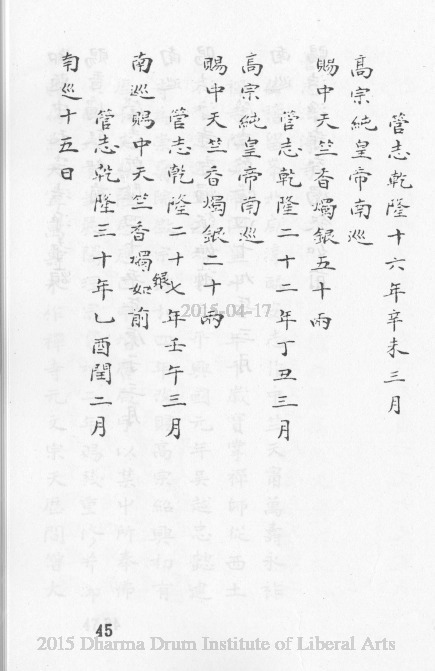 管志乾隆十六年辛未三月
高宗純皇帝南巡
賜中天竺香燭銀五十兩
管志乾隆二十二年丁丑三月
高宗純皇帝南巡
賜中天竺香燭銀二十兩
管志乾隆二十七年壬午三月
南巡賜中天竺香燭銀如前
管志乾隆三十年乙酉閏二月
南巡十五日
2015-04-17
45
2015 Dharma Drum Institute of Liberal Arts